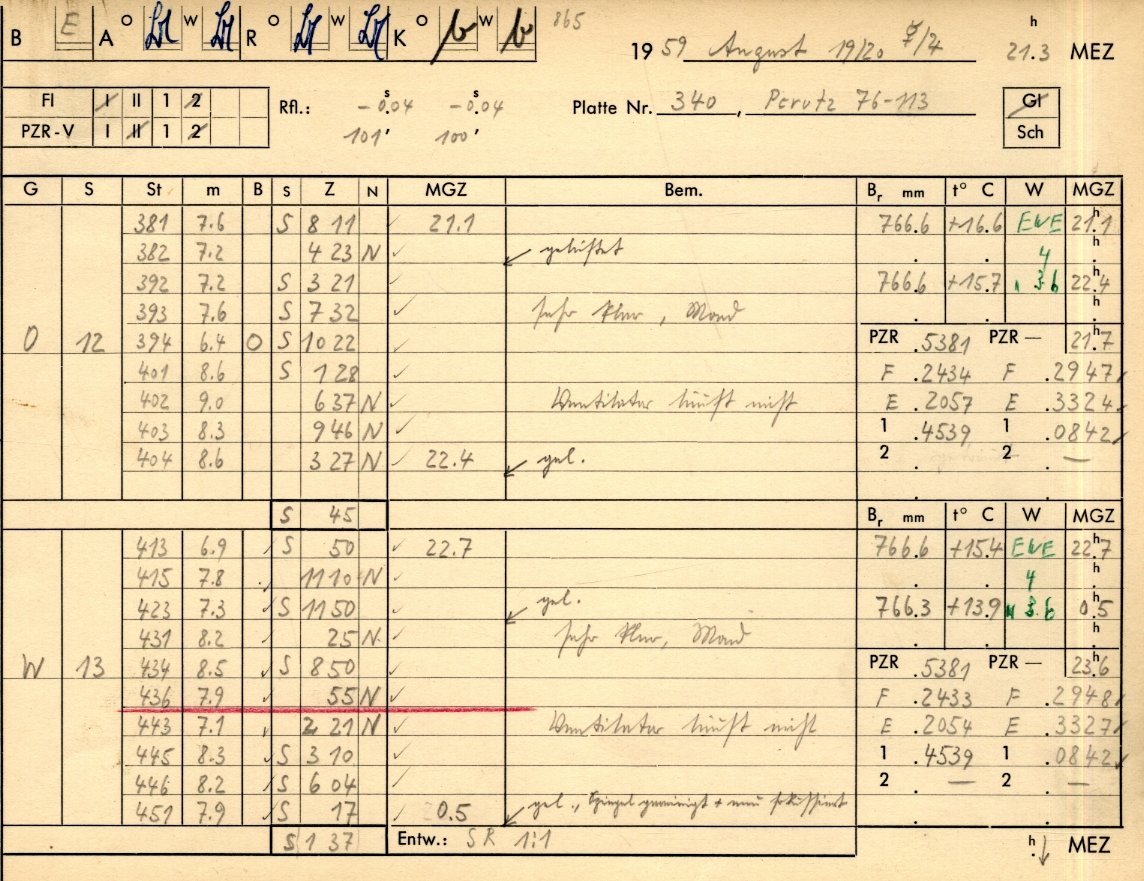 B E A O W R O W K O W 865
1959 August 19/20 21.3 h MEZ
FI I II 1 2
PZR-V I II 1 2
Rfl.: -0.04 s -0.04 s
101' 100'
Platte Nr. 340, Perutz 76-113
Gl
Sch
G S St m B S Z N MGZ Bem. Br mm t° C W MGZ
381 7.6 S 8 11 ✓ 21.1 766.6 +16.6 EWE 21.1 h
382 7.2 4 23 N ✓ ↙ gelüftet 4
392 7.2 S 3 21 ✓ 766.6 +15.7 3.6 22.4 h
393 7.6 S 7 32 ✓ sehr klar, Mond
O 12 394 6.4 O S 10 22 ✓ PZR .5381 PZR — 21.7 h
401 8.6 S 1 28 ✓ F .2434 F .2947
402 9.0 6 37 N ✓ Ventilator läuft nicht E .2057 E .3324
403 8.3 9 46 N ✓ 1 .4539 1 .0842
404 8.6 3 27 N ✓ 22.4 ↙ gel. 2 . 2 . —
S 45 Br mm t° C W MGZ
413 6.9 ✓ S 50 ✓ 22.7 766.6 +15.4 EWE 22.7 h
415 7.8 11 10 N ✓ 4
423 7.3 ✓ S 11 50 ✓ ↙ gel. 766.3 +13.9 3.6 0.5 h
431 8.2 ✓ 25 N ✓ sehr klar, Mond
W 13 434 8.5 ✓ S 8 50 ✓ PZR .5381 PZR — 23.6 h
436 7.9 ✓ 55 N ✓ F .2433 F .2948
443 7.1 ✓ 2 21 N ✓ Ventilator läuft nicht E .2054 E .3327
445 8.3 ✓ S 3 10 ✓ 1 .4539 1 .0842
446 8.2 ✓ S 6 04 ✓ 2 — 2 —
451 7.9 ✓ S 17 ✓ 0.5 ↙ gel., Spiegel gereinigt + neu fokussiert
S 1 37 Entw.: SR 1:1 h ↓ MEZ